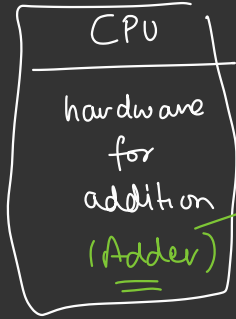 CPU
hardware
for
addition
(Adder)